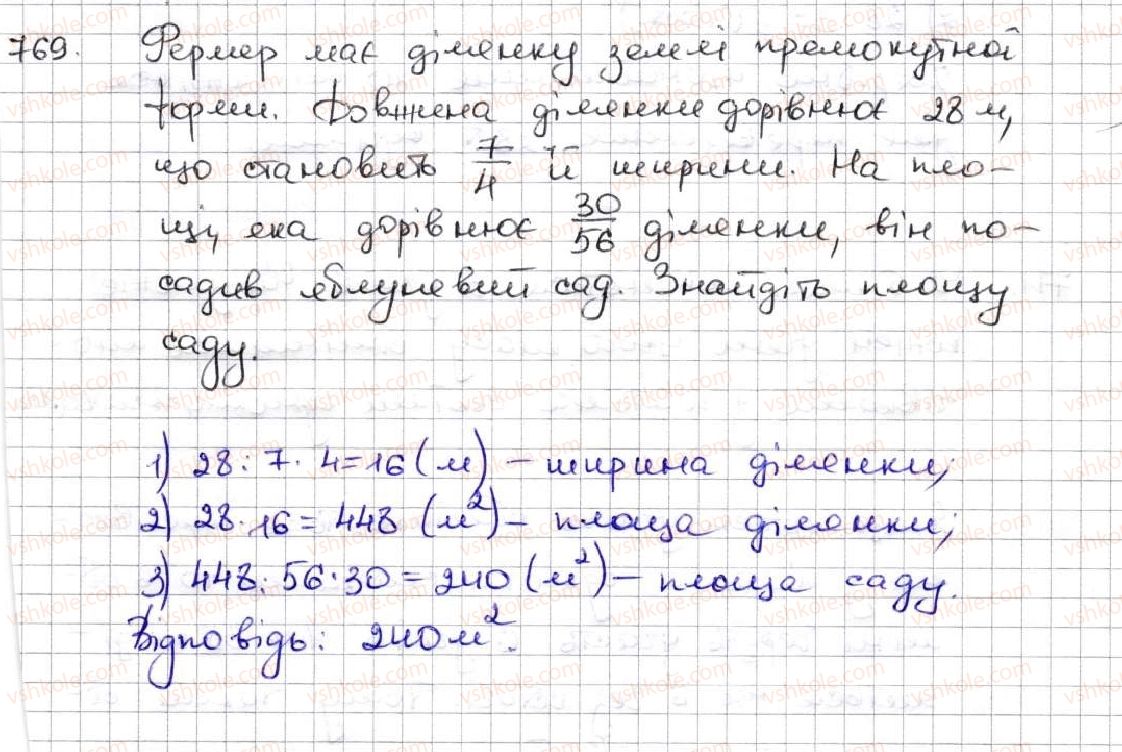 769. Фермер має ділянку землі прямокутної
форми. Довжина ділянки дорівнює 28 м,
що становить 7/4 її ширини. На пло-
щі, яка дорівнює 30/56 ділянки, він по-
садив яблуневий сад. Знайдіть площу
саду.
1) 28 : 7 · 4 = 16 (м) – ширина ділянки;
2) 28 · 16 = 448 (м²) – площа ділянки;
3) 448 : 56 · 30 = 240 (м²) – площа саду.
Відповідь: 240 м².
vshkole.com